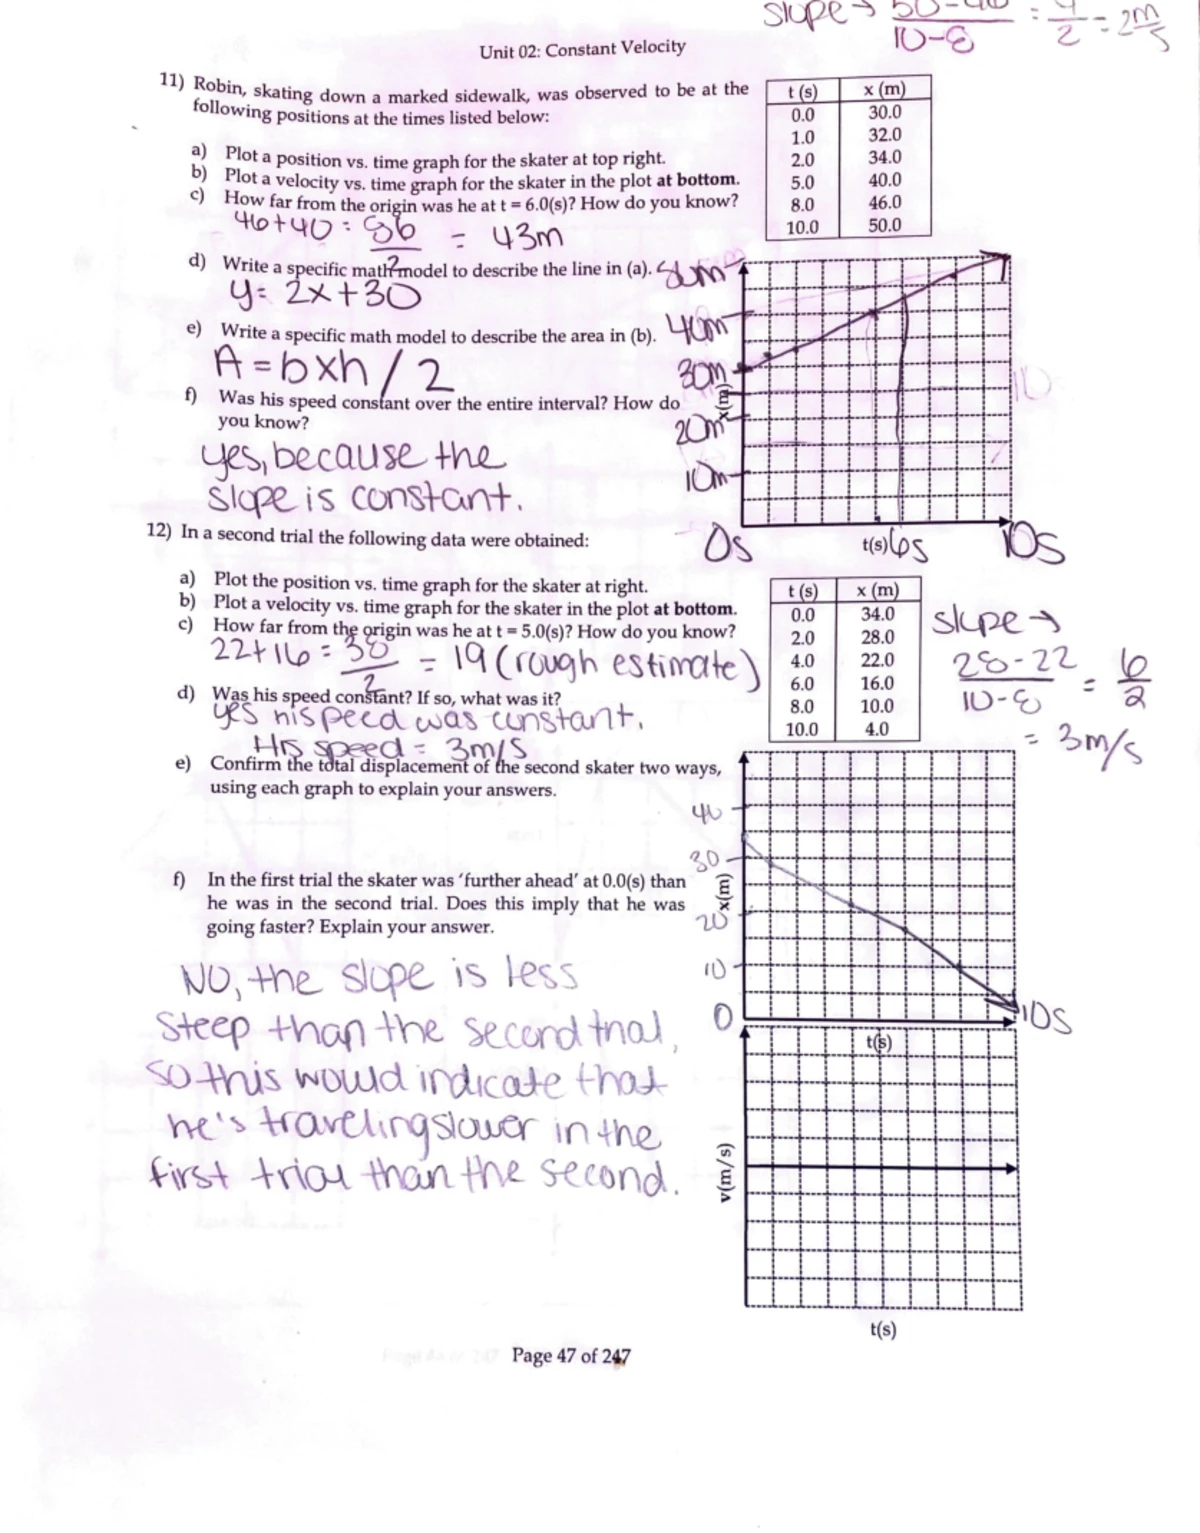 slope → 50-46 = 4 = 2m
10-8 2 s
Unit 02: Constant Velocity
11) Robin, skating down a marked sidewalk, was observed to be at the
following positions at the times listed below:
t (s) x (m)
0.0 30.0
1.0 32.0
2.0 34.0
5.0 40.0
8.0 46.0
10.0 50.0
a) Plot a position vs. time graph for the skater at top right.
b) Plot a velocity vs. time graph for the skater in the plot at bottom.
c) How far from the origin was he at t = 6.0(s)? How do you know?
46+40 = 86 = 43m
2
d) Write a specific math model to describe the line in (a).
y= 2x+30
e) Write a specific math model to describe the area in (b).
A=bxh/2
f) Was his speed constant over the entire interval? How do
you know?
yes, because the
slope is constant.
50m
40m
30m
x(m)
20m
10m
0s t(s) 6s 10s
12) In a second trial the following data were obtained:
t (s) x (m)
0.0 34.0
2.0 28.0
4.0 22.0
6.0 16.0
8.0 10.0
10.0 4.0
slope →
28-22 = 6
10-8 2
= 3m/s
a) Plot the position vs. time graph for the skater at right.
b) Plot a velocity vs. time graph for the skater in the plot at bottom.
c) How far from the origin was he at t = 5.0(s)? How do you know?
22+16 = 38 = 19 (rough estimate)
2
d) Was his speed constant? If so, what was it?
yes his peed was constant.
His speed = 3m/s
e) Confirm the total displacement of the second skater two ways,
using each graph to explain your answers.
f) In the first trial the skater was ‘further ahead’ at 0.0(s) than
he was in the second trial. Does this imply that he was
going faster? Explain your answer.
NO, the slope is less
steep than the second trial,
so this would indicate that
he's traveling slower in the
first trial than the second.
40
30
x(m)
20
10
0 10s
t(s)
v(m/s)
t(s)
Page 47 of 247